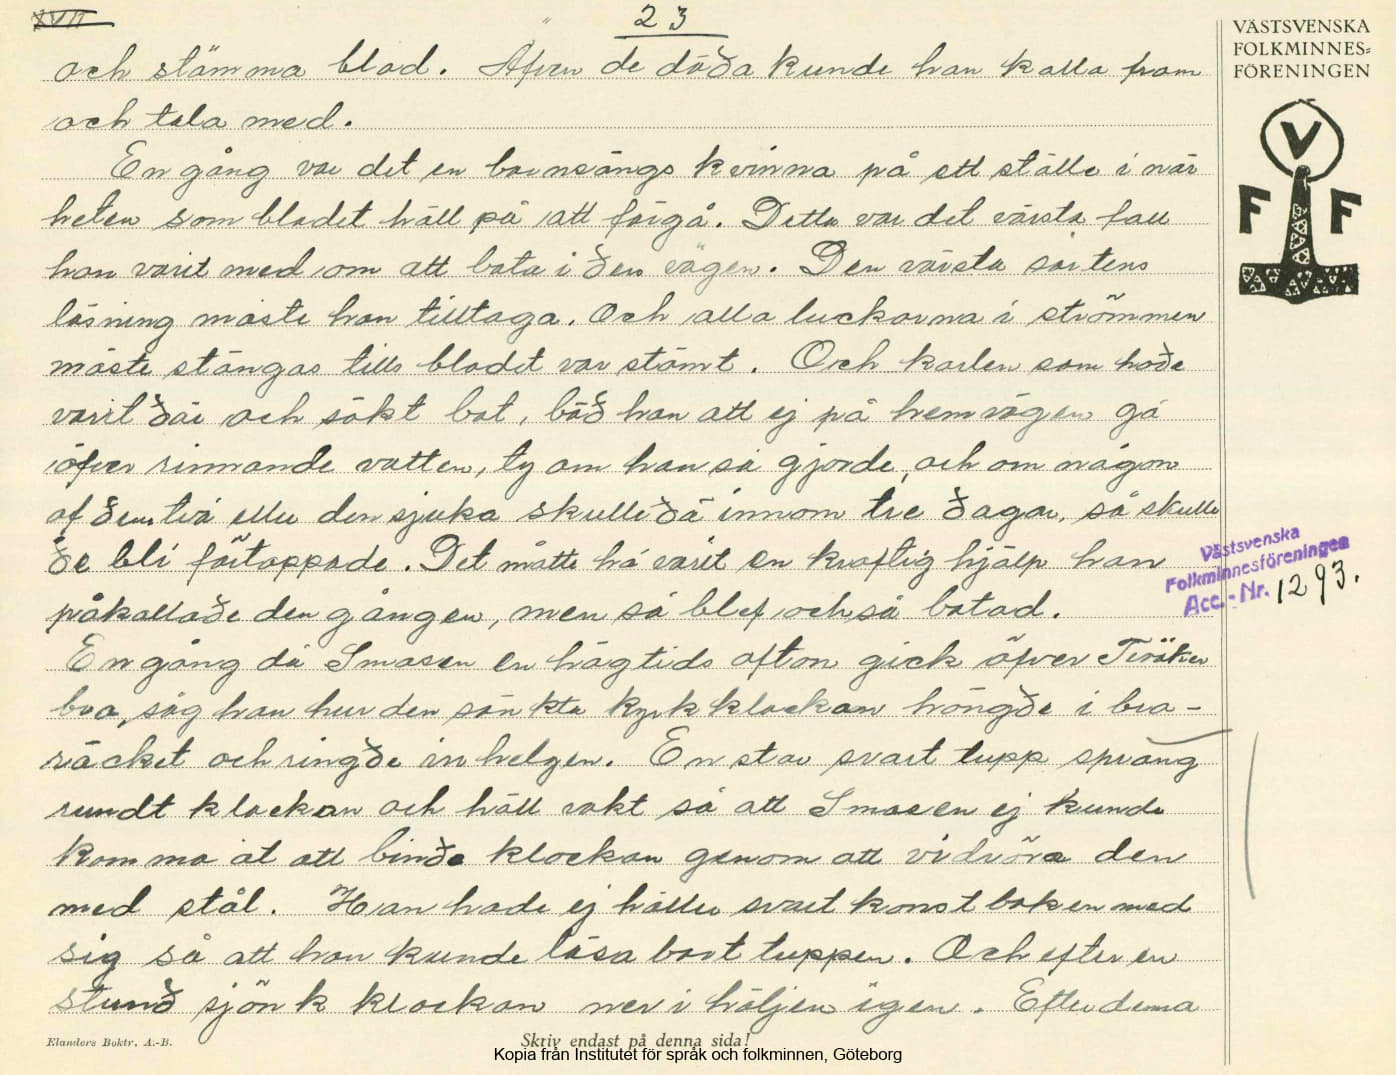 XVII
23
och stämma blod. Äfven de döda kunde han kalla fram
och tala med.
En gång var det en barnsängs kvinna på ett ställe i när
heten som blodet höll på att förgå. Detta var det värsta fall
han varit med om att bota i den vägen. Den värsta sortens
läsning måste han tilltaga. Och alla luckorna i strömmen
måste stängas tills blodet var stämt. Och karlen som hade
varit där och sökt bot, bad han att ej på hemvägen gå
öfver rinnande vatten, ty om han så gjorde, och om någon
af dem två eller den sjuka skulle dö innom tre dagar, så skulle
de bli förtappade. Det måtte ha varit en kraftig hjälp han
påkallade den gången, men så blef och så botad.
En gång då Smasen en högtids afton gick öfver
bro, såg han hur den sänkta kyrkklockan hängde i bro-
räcket och ringde in helgen. En stor svart tupp sprang
rundt klockan och höll vakt så att Smasen ej kunde
komma åt att binda klockan genom att vidröra den
med stål. Han hade ej häller svart konst boken med
sig så att han kunde läsa bort tuppen. Och efter en
stund sjönk klockan ner i höljen igen. Efter denna
VÄSTSVENSKA
FOLKMINNES=
FÖRENINGEN
V
F F
Västsvenska
Folkminnesföreningen
Acc. - Nr. 1293.
Elanders Boktr. A.-B.
Skriv endast på denna sida!
Kopia från Institutet för språk och folkminnen, Göteborg